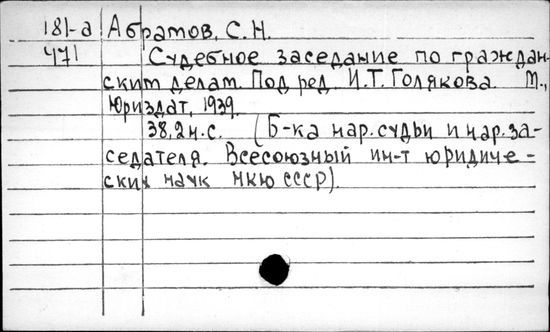 181-а Абрамов, С.Н.
471 Судебное заседание по граждан-
ским делам. Под ред. И.Т. Голякова. М.,
Юриздат, 1939.
38,2 н.с. (Б-ка нар. судьи и нар. за-
седателя. Всесоюзный ин-т юридиче-
ских наук НКЮ СССР).